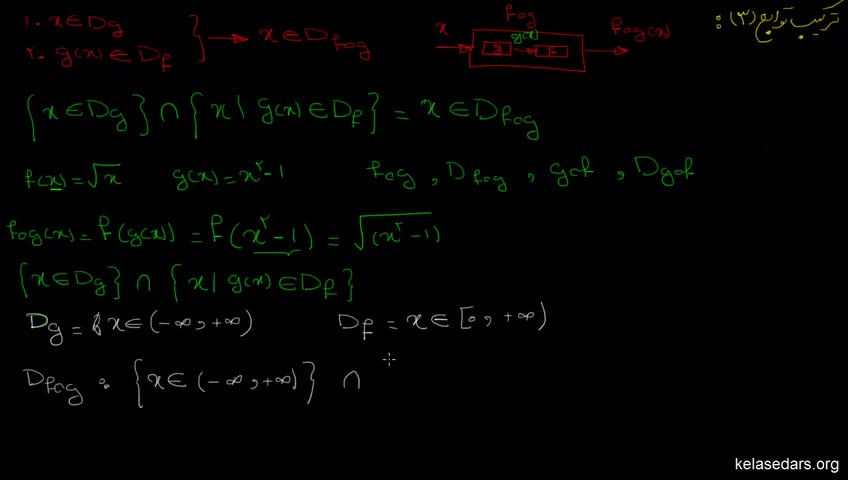 ترکیب توابع (۳) :
۱. x ∈ Dg
۲. g(x) ∈ Df } → x ∈ Dfog
x g(x) fog fog(x)
{x ∈ Dg} ∩ {x | g(x) ∈ Df} = x ∈ Dfog
f(x) = √x g(x) = x² - 1 fog , Dfog , gof , Dgof
fog(x) = f(g(x)) = f(x² - 1) = √(x² - 1)
{x ∈ Dg} ∩ {x | g(x) ∈ Df}
Dg = x ∈ (-∞, +∞) Df = x ∈ [0, +∞)
Dfog : {x ∈ (-∞, +∞)} ∩
kelasedars.org